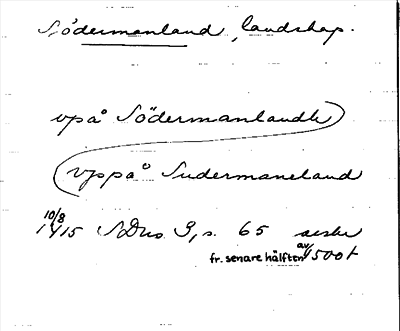 Södermanland, landskap.
vpå Södermanlandh
vppå Sudermaneland
10/8 1415 SDns 3, s. 65 avskr
fr. senare hälften av 1500t